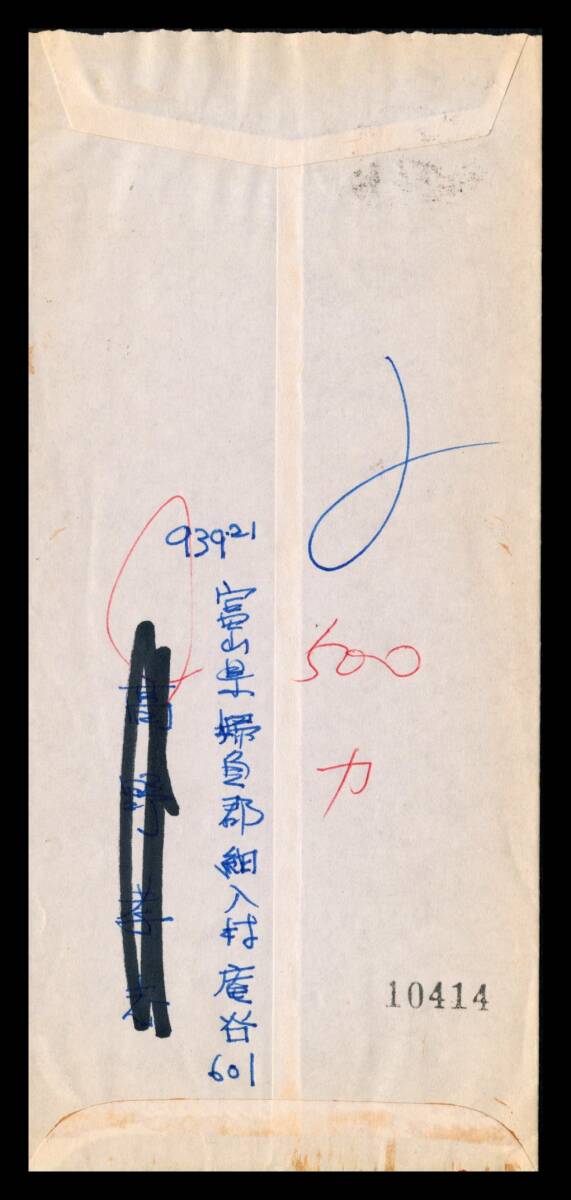 939-21
富山県婦負郡細入村庵谷
601
500
カ
10414